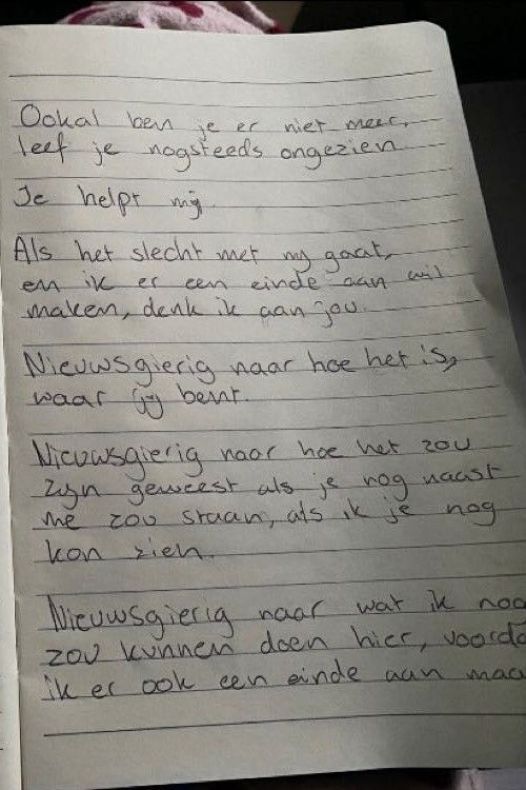 Ookal ben je er niet meer,
leef je nogsteeds ongezien
Je helpt mij.
Als het slecht met mij gaat,
en ik er een einde aan wil
maken, denk ik aan jou.
Nieuwsgierig naar hoe het is,
waar jij bent.
Nieuwsgierig naar hoe het zou
zijn geweest als je nog naast
me zou staan, als ik je nog
kon zien.
Nieuwsgierig naar wat ik noo
zou kunnen doen hier, voordo
ik er ook een einde aan maa